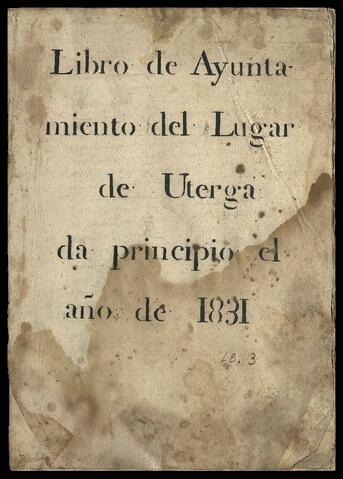 Libro de Ayunta-
miento del Lugar
de Uterga
da principio el
año de 1831
LB. 3